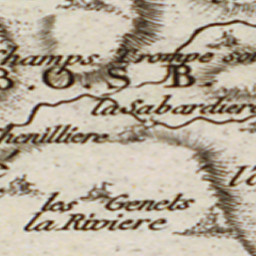 Champs Trompe sou
B.O.S B.
la Sabardiere
Chenilliere
les Genets
la Riviere